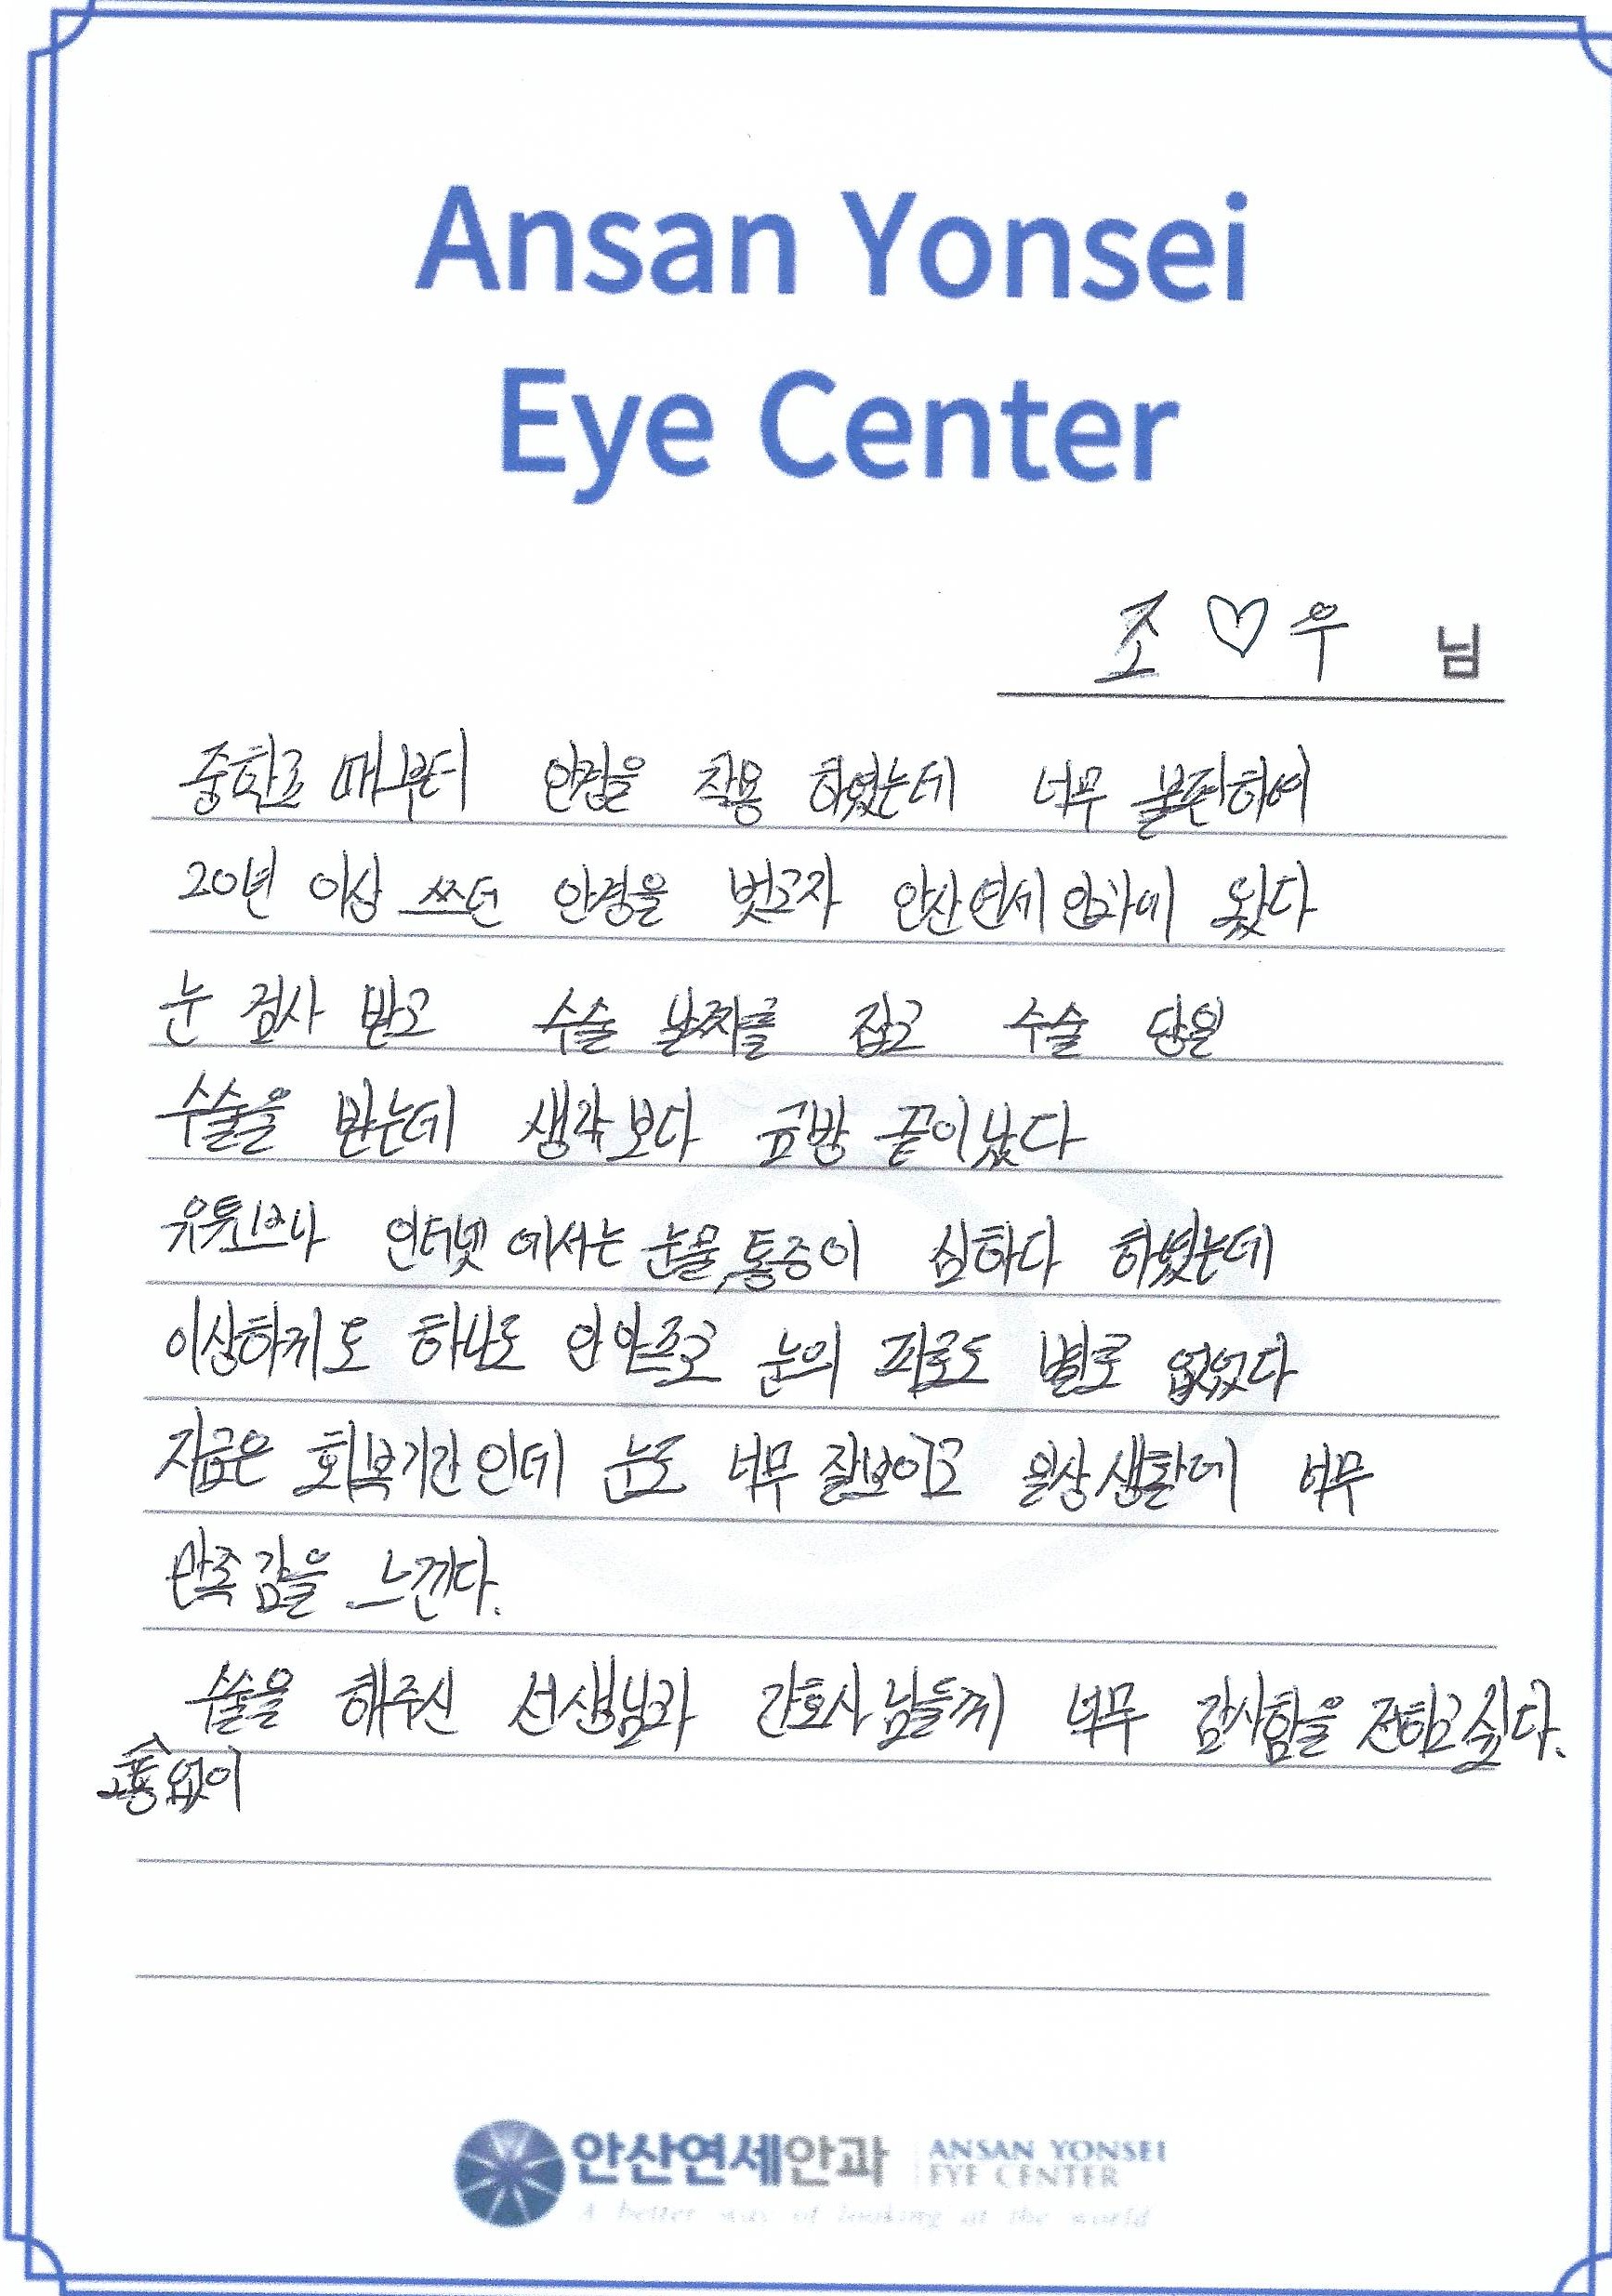 Ansan Yonsei
Eye Center
조 ♡ 우 님
중학교 때부터 안경을 착용 하였는데 너무 불편하여
20년 이상 쓰던 안경을 벗고자 안산연세안과에 왔다
눈 검사 받고 수술 날짜를 잡고 수술 당일
수술을 받는데 생각보다 금방 끝이났다
유튜브나 인터넷 에서는 눈물,통증이 심하다 하였는데
이상하게도 하나도 안 아프고 눈의 피로도 별로 없었다
지금은 회복기간인데 눈도 너무 잘보이고 일상생활에 너무
만족감을 느낀다.
수술을 해주신 선생님과 간호사님들께 너무 감사함을 전하고싶다.
고통없이
안산연세안과 ANSAN YONSEI
EYE CENTER
A better way of looking at the world